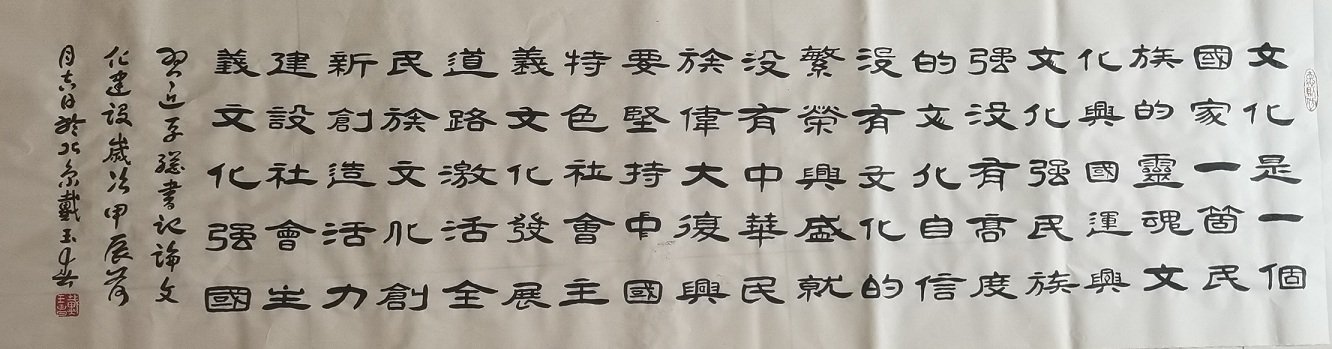 文化是一個
國家一箇民
族的靈魂文
化興國運興
文化强民族
强没有高度
的文化自信
没有文化的
繁榮興盛就
没有中華民
族偉大復興
要堅持中國
特色社會主
義文化發展
道路激活全
民族文化創
新創造活力
建設社會主
義文化强國
習近平總書記論文
化建設歲次甲辰荷
月吉日於北京戴玉